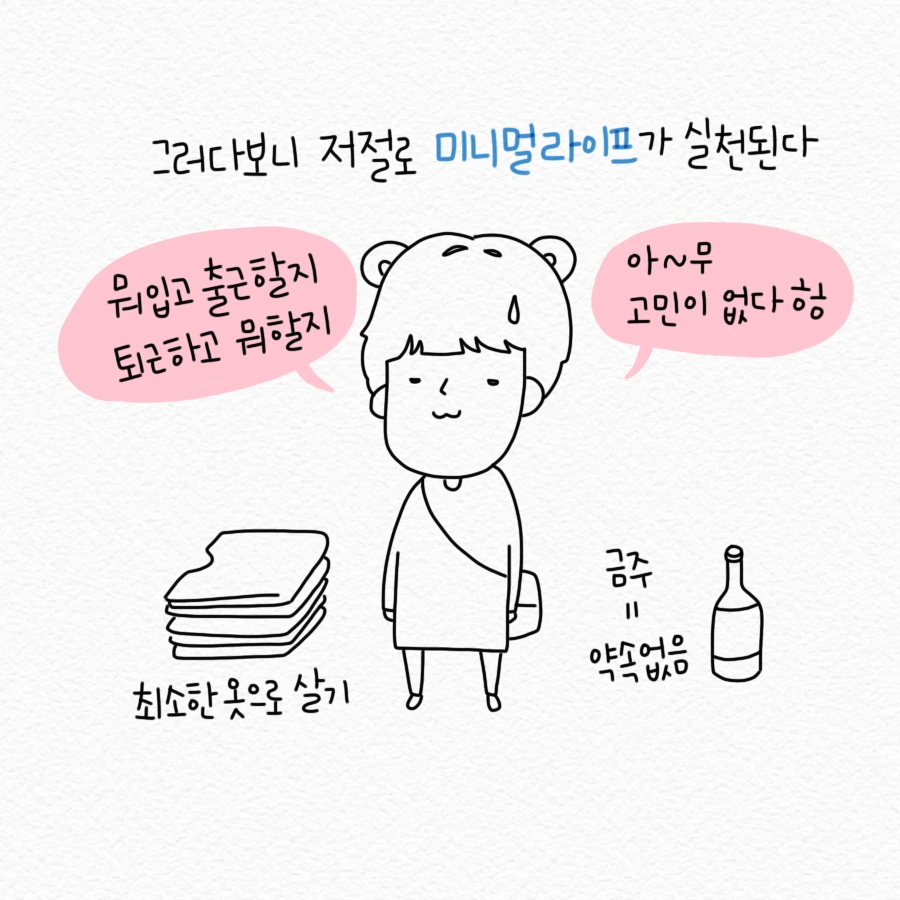 그러다보니 저절로 미니멀라이프가 실천된다
뭐입고 출근할지
퇴근하고 뭐할지
아~무
고민이 없다 헝
최소한 옷으로 살기
금주
=
약속없음